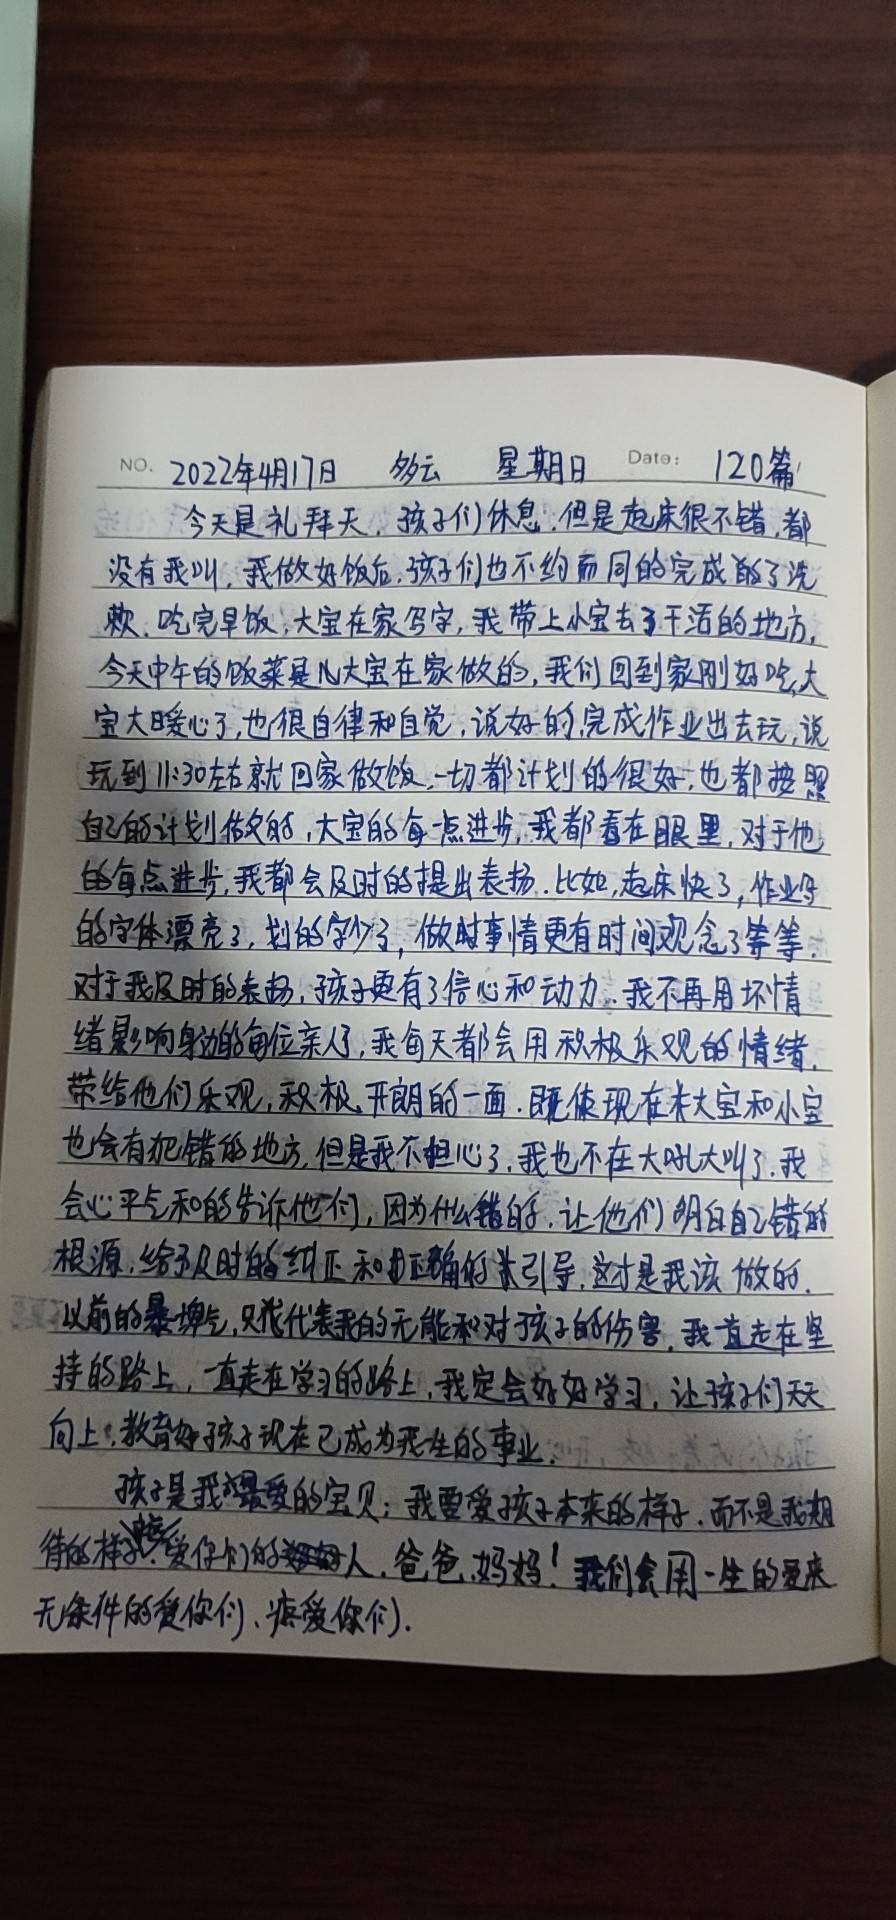 NO. 2022年4月17日 多云 星期日 Date: 120篇
今天是礼拜天，孩子们休息，但是起床很不错，都
没有我叫，我做好饭后，孩子们也不约而同的完成了洗
漱，吃完早饭，大宝在家写字，我带上小宝去了干活的地方，
今天中午的饭菜是大宝在家做的，我们回到家刚好吃，大
宝太暖心了，也很自律和自觉，说好的完成作业出去玩，说
玩到11:30左右就回家做饭，一切都计划的很好，也都按照
自己的计划做的，大宝的每一点进步，我都看在眼里，对于他
的每点进步，我都会及时的提出表扬，比如，起床快了，作业写
的字体漂亮了，划的字少了，做时事情更有时间观念了等等，
对于我及时的表扬，孩子更有了信心和动力，我不再用坏情
绪影响身边的每位亲人了，我每天都会用积极乐观的情绪，
带给他们乐观，积极，开朗的一面，既使现在大宝和小宝
也会有犯错的地方，但是我不担心了，我也不在大吼大叫了，我
会心平气和的告诉他们，因为什么错的，让他们明白自己错的
根源，给予及时的纠正和正确的引导，这才是我该做的，
以前的暴脾气，只能代表我的无能和对孩子的伤害，我一直走在坚
持的路上，一直走在学习的路上，我定会好好学习，让孩子们天天
向上，教育好孩子现在已成为我一生的事业。
孩子是我最爱的宝贝；我要爱孩子本来的样子，而不是我期
待的样子，爱你们的人，爸爸，妈妈！我们会用一生的爱来
无条件的爱你们、疼爱你们.